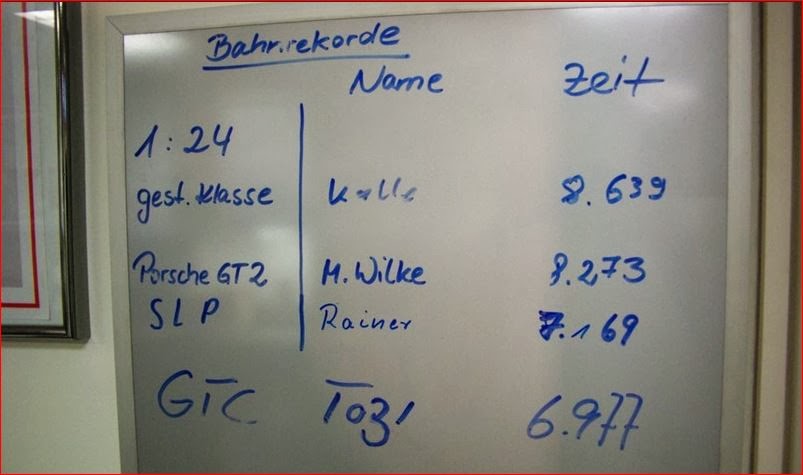 Bahnrekorde
Name Zeit
1:24
gest. Klasse Kalle 8.639
Porsche GT2 M. Wilke 8.273
SLP Rainer 7.169
GTC 6.977